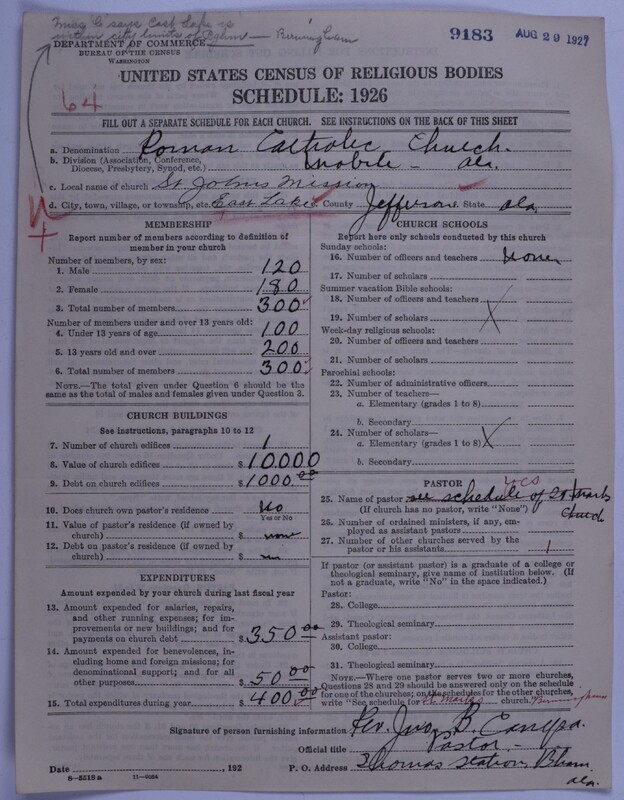 Miss C says East Lake is
within city limits of Bghm — Birmingham
9183
AUG 29 1927
DEPARTMENT OF COMMERCE
BUREAU OF THE CENSUS
WASHINGTON
UNITED STATES CENSUS OF RELIGIOUS BODIES
SCHEDULE: 1926
64
FILL OUT A SEPARATE SCHEDULE FOR EACH CHURCH. SEE INSTRUCTIONS ON THE BACK OF THIS SHEET
a. Denomination Roman Catholic Church.
b. Division (Association, Conference,
Diocese, Presbytery, Synod, etc.) Mobile - Ala.
c. Local name of church St Johns Mission
d. City, town, village, or township, etc. East Lake e. County Jefferson f. State Ala
MEMBERSHIP
Report number of members according to definition of
member in your church
Number of members, by sex:
1. Male 120
2. Female 180
3. Total number of members 300
Number of members under and over 13 years old:
4. Under 13 years of age 100
5. 13 years old and over 200
6. Total number of members 300
NOTE.—The total given under Question 6 should be the
same as the total of males and females given under Question 3.
CHURCH BUILDINGS
See instructions, paragraphs 10 to 12
7. Number of church edifices 1
8. Value of church edifices $ 10,000
9. Debt on church edifices $ 1000.00
10. Does church own pastor's residence? No
Yes or No
11. Value of pastor's residence (if owned by
church) $ none
12. Debt on pastor's residence (if owned by
church) $
EXPENDITURES
Amount expended by your church during last fiscal year
13. Amount expended for salaries, repairs,
and other running expenses; for im-
provements or new buildings; and for
payments on church debt $ 350.00
14. Amount expended for benevolences,
including home and foreign missions; for
denominational support; and for all
other purposes $ 50.00
15. Total expenditures during year $ 400.00
CHURCH SCHOOLS
Report here only schools conducted by this church
Sunday schools:
16. Number of officers and teachers None
17. Number of scholars
Summer vacation Bible schools:
18. Number of officers and teachers
19. Number of scholars
Week-day religious schools:
20. Number of officers and teachers
21. Number of scholars
Parochial schools:
22. Number of administrative officers
23. Number of teachers—
a. Elementary (grades 1 to 8)
b. Secondary
24. Number of scholars—
a. Elementary (grades 1 to 8) X
b. Secondary
PASTOR
25. Name of pastor see schedule of St Marks
(If church has no pastor, write "None") Church
26. Number of ordained ministers, if any, em-
ployed as assistant pastors
27. Number of other churches served by the
pastor or his assistants 1
If pastor (or assistant pastor) is a graduate of a college or
theological seminary, give name of institution below. (If
not a graduate, write "No" in the space indicated.)
Pastor:
28. College
29. Theological seminary
Assistant pastor:
30. College
31. Theological seminary
NOTE.—Where one pastor serves two or more churches,
Questions 28 and 29 should be answered only on the schedule
for one of the churches; on the schedules for the other churches,
write "See schedule for St Marks church. Birmingham
Signature of person furnishing information Rev. Jno. B. Canepa
Official title Pastor -
Date , 192 P. O. Address Thomas Station, Bham
Ala.
8—5518a 11—9054